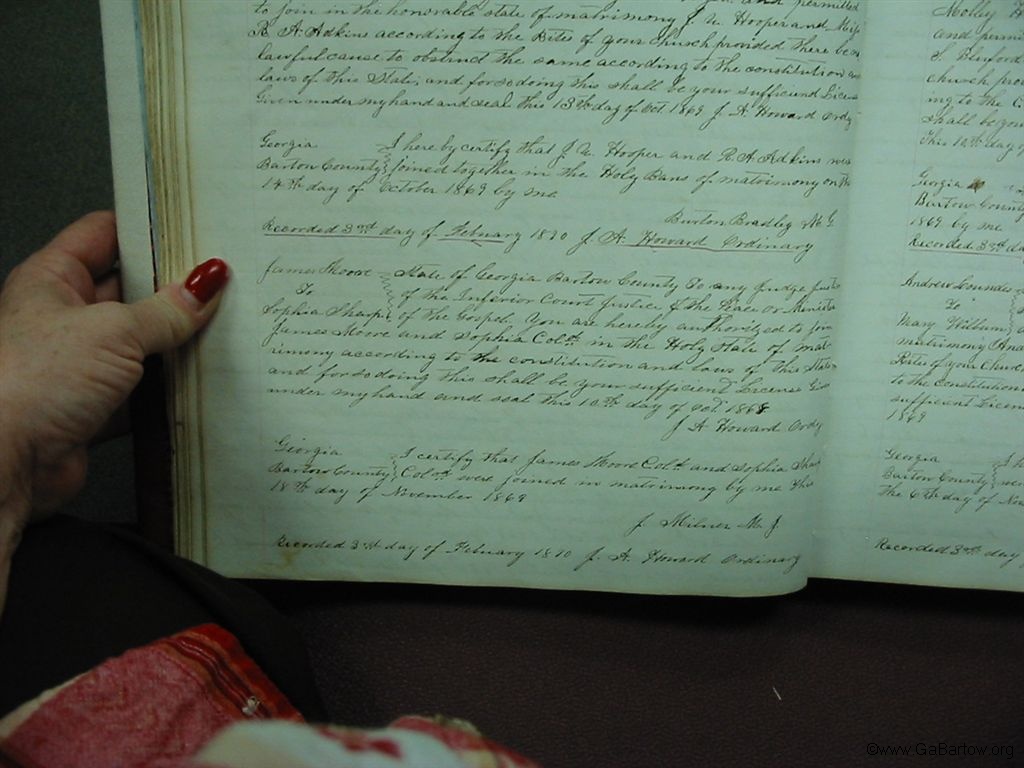 to join in the honorable state of matrimony J. W. Hooper and Miss
R. A. Adkins according to the Rites of your church provided there be no
lawful cause to obstruct the same according to the constitution and
laws of this State, and for so doing this shall be your sufficient Licens
Given under my hand and seal this 13th day of Oct. 1869 J. A. Howard Ordy
Georgia
Barton County
I hereby certify that J. W. Hooper and R. A. Adkins were
joined together in the Holy Bans of matrimony on the
14th day of October 1869 by me
Burton Bradley M. G.
Recorded 3rd day of February 1870 J. A. Howard Ordinary
James Moore
To
Sophia Sharp
State of Georgia Bartow County To any Judge Justi
of the Inferior Court Justice of the Peace or Ministe
of the Gospel. You are hereby authorized to join
James Moore and Sophia Cold. in the Holy State of mat
rimony according to the constitution and laws of this State
and for so doing this shall be your sufficient License Given
under my hand and seal this 10th day of Oct. 1868
J A Howard Ordy
Georgia
Bartow County
I certify that James Moore Cold. and Sophia Sharp
Cold. were joined in matrimony by me this
18th day of November 1869
J. Milner M. J.
Recorded 3rd day of February 1870 J. A. Howard Ordinary
Molley H
and permi
S. Buford
church pro
ing to the C
shall be your
This 10th day o
Georgia
Bartow County
1869 by me
Recorded 3rd da
Andrew Lowndes
To
Mary William
matrimony
Rites of your Churc
to the Constitution
sufficient Licen
1869
Georgia
Bartow County
The 6th day of Nov
Recorded 3rd day
©www.GaBartow.org